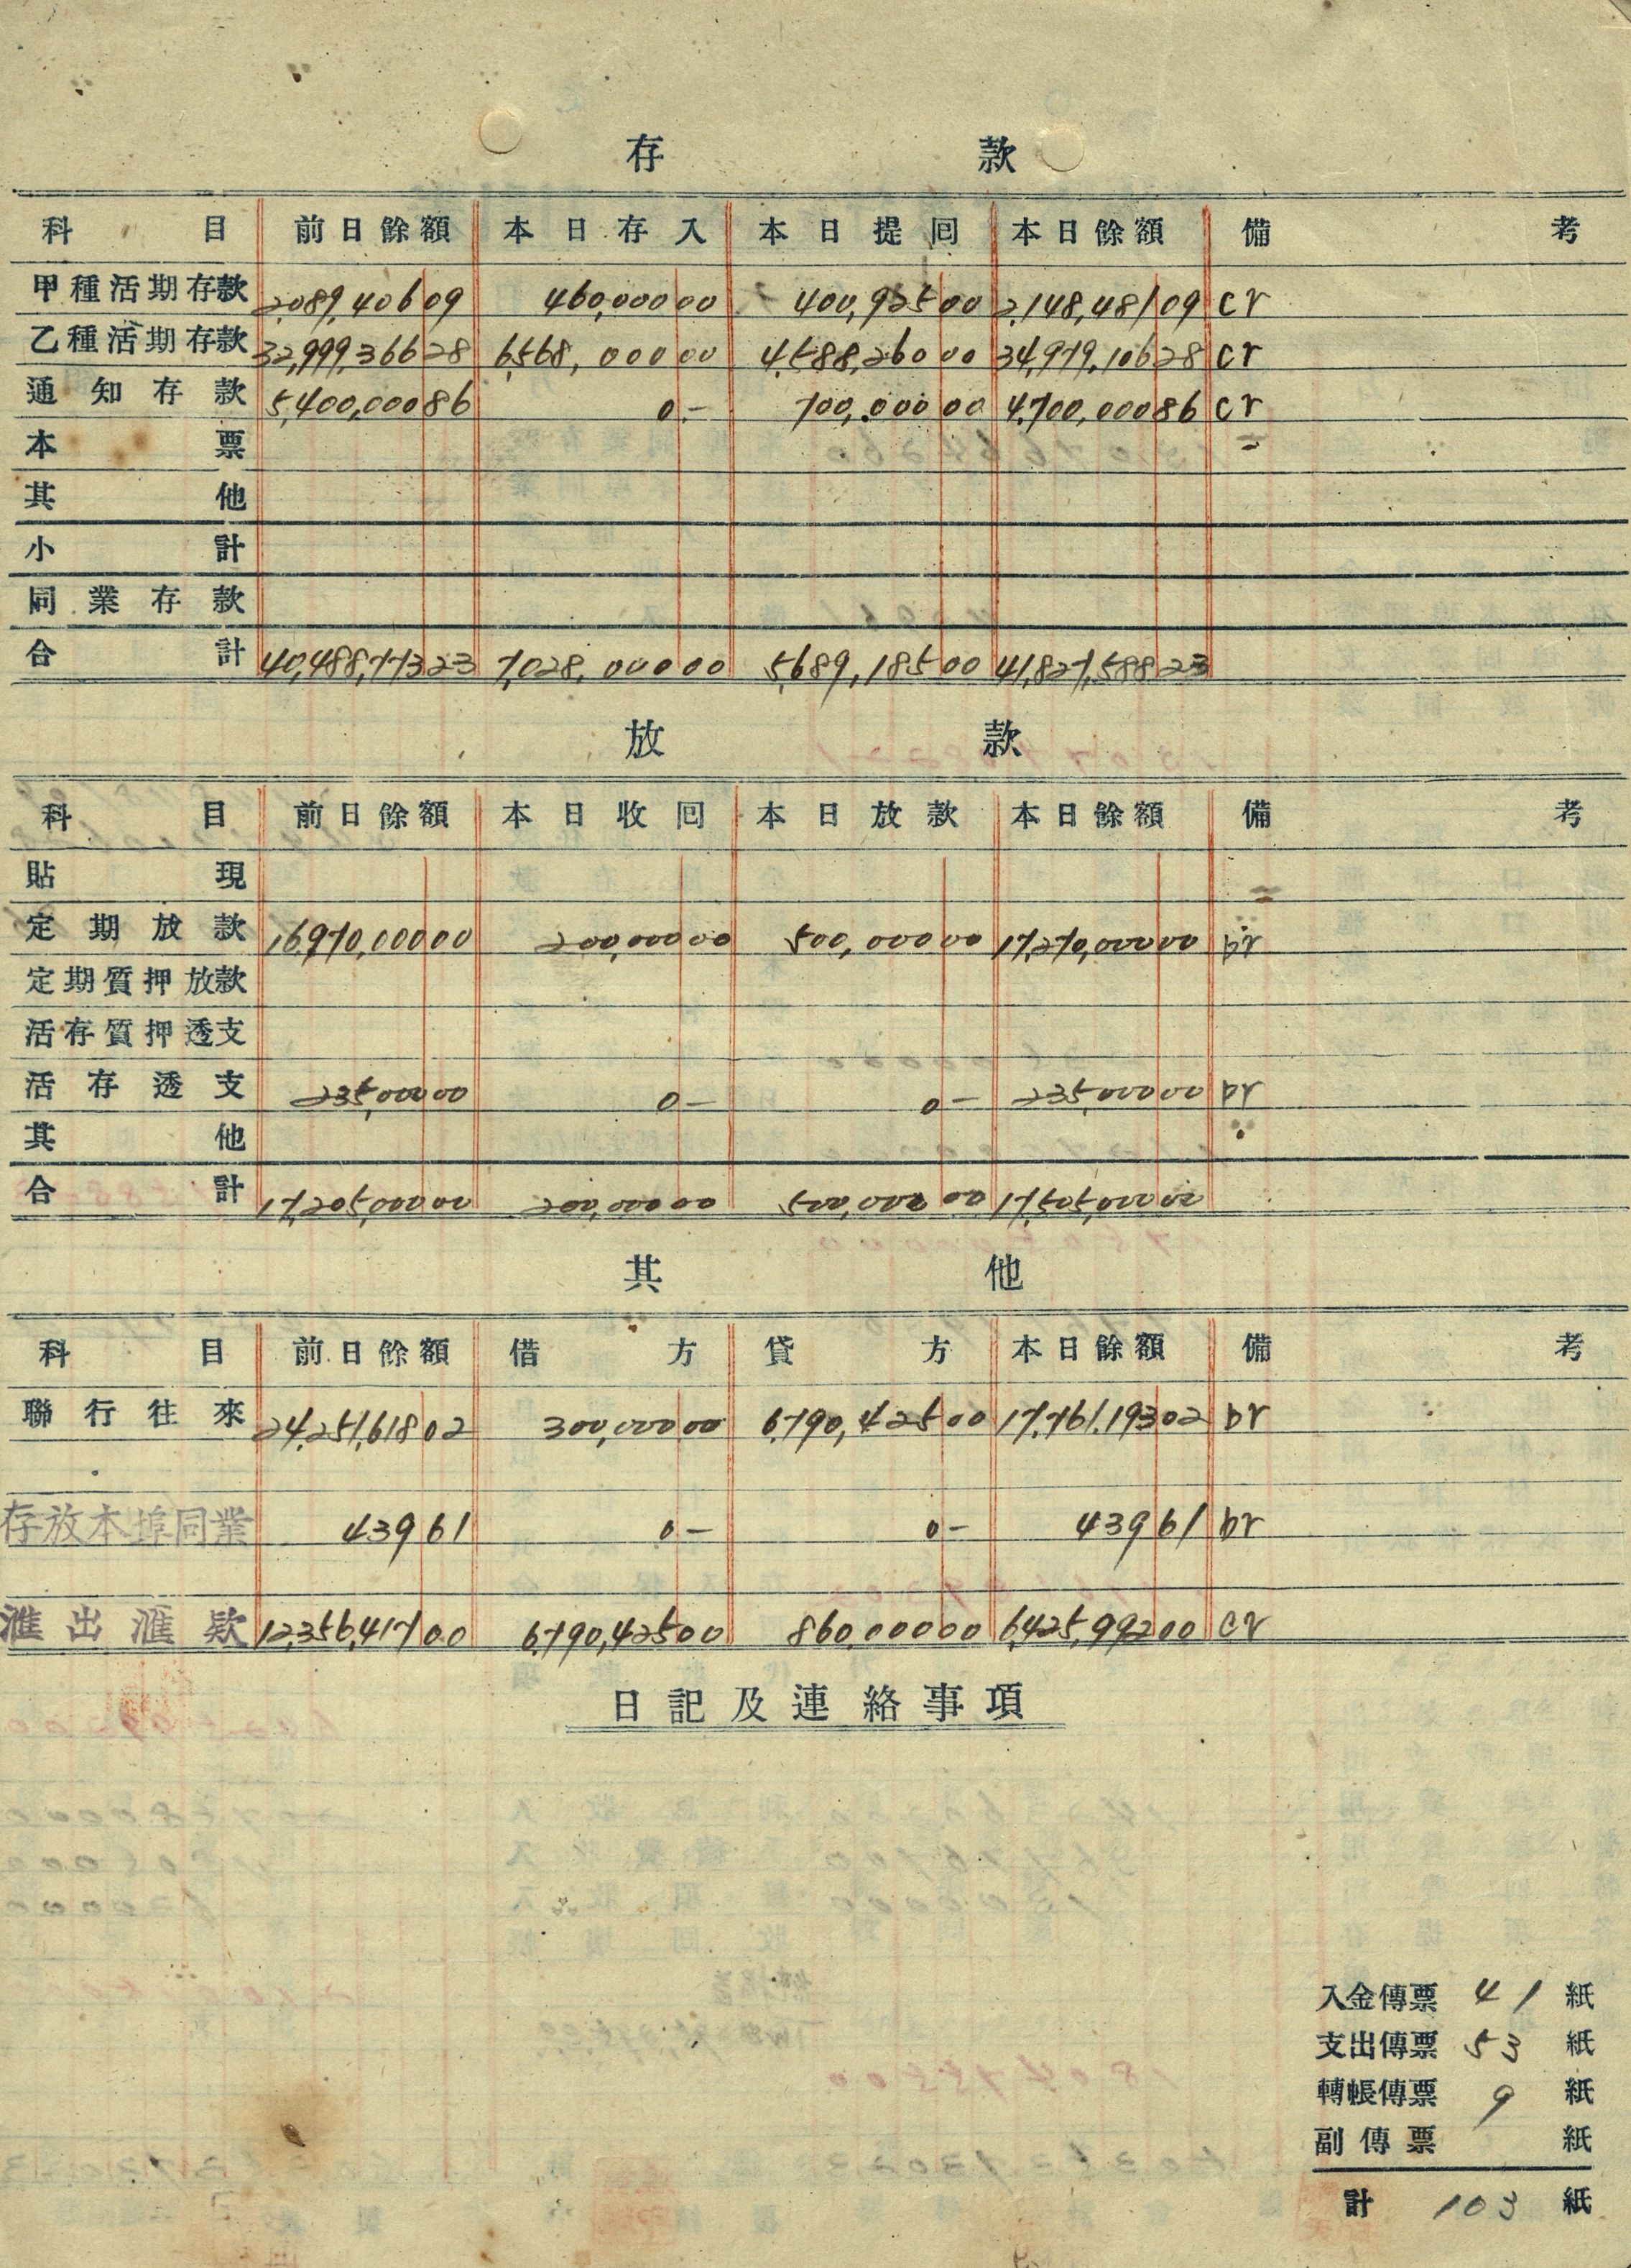 存款
科目 前日餘額 本日存入 本日提回 本日餘額 備考
甲種活期存款 2,089,406 09 460,000 00 400,925 00 2,148,481 09 cr
乙種活期存款 32,999,366 28 6,568,000 00 4,588,260 00 34,979,106 28 cr
通知存款 5,400,000 86 0.- 700,000 00 4,700,000 86 cr
本票
其他
小計
同業存款
合計 40,488,773 23 7,028,000 00 5,689,185 00 41,827,588 23
放款
科目 前日餘額 本日收回 本日放款 本日餘額 備考
貼現
定期放款 16,970,000 00 200,000 00 500,000 00 17,270,000 00 Dr
定期質押放款
活存質押透支
活存透支 235,000 00 0- 0- 235,000 00 Dr
其他
合計 17,205,000 00 200,000 00 500,000 00 17,505,000 00
其他
科目 前日餘額 借方 貸方 本日餘額 備考
聯行往來 24,251,618 02 300,000 00 6,790,425 00 17,761,193 02 Dr
存放本埠同業 439 61 0- 0- 439 61 Dr
滙出滙款 12,356,417 00 6,790,425 00 860,000 00 6,425,992 00 cr
日記及連絡事項
入金傳票 41 紙
支出傳票 53 紙
轉帳傳票 9 紙
副傳票 紙
計 103 紙